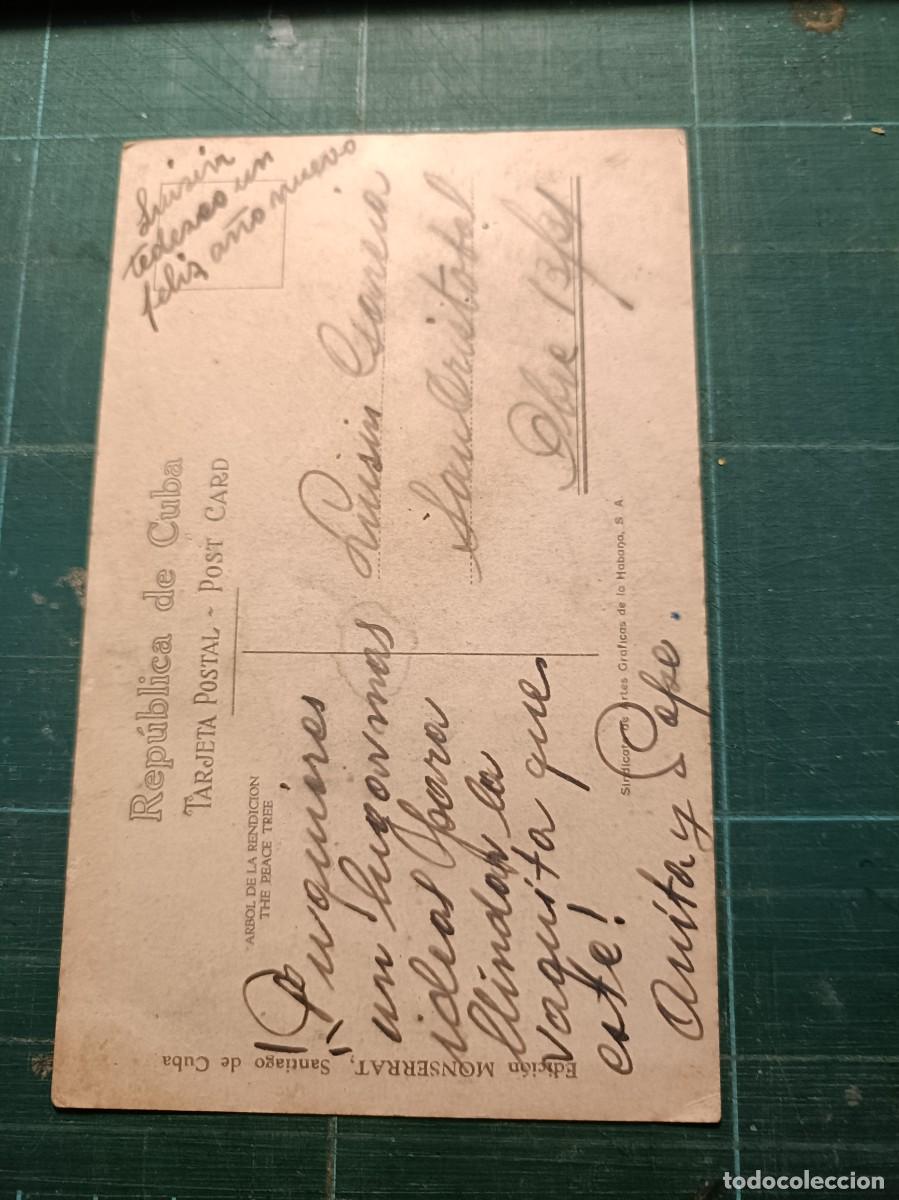 República de Cuba
TARJETA POSTAL ~ POST CARD
ARBOL DE LA RENDICION
THE PEACE TREE
Edición MONSERRAT, Santiago de Cuba
Luisin
te deseo un
feliz año nuevo
quieres
un lugar mas
ideal para
la
vaquita que
este!
Anita y Pepe.
Luisin
San Cristobal
Sindicato de Artes Graficas de la Habana, S. A.
todocoleccion